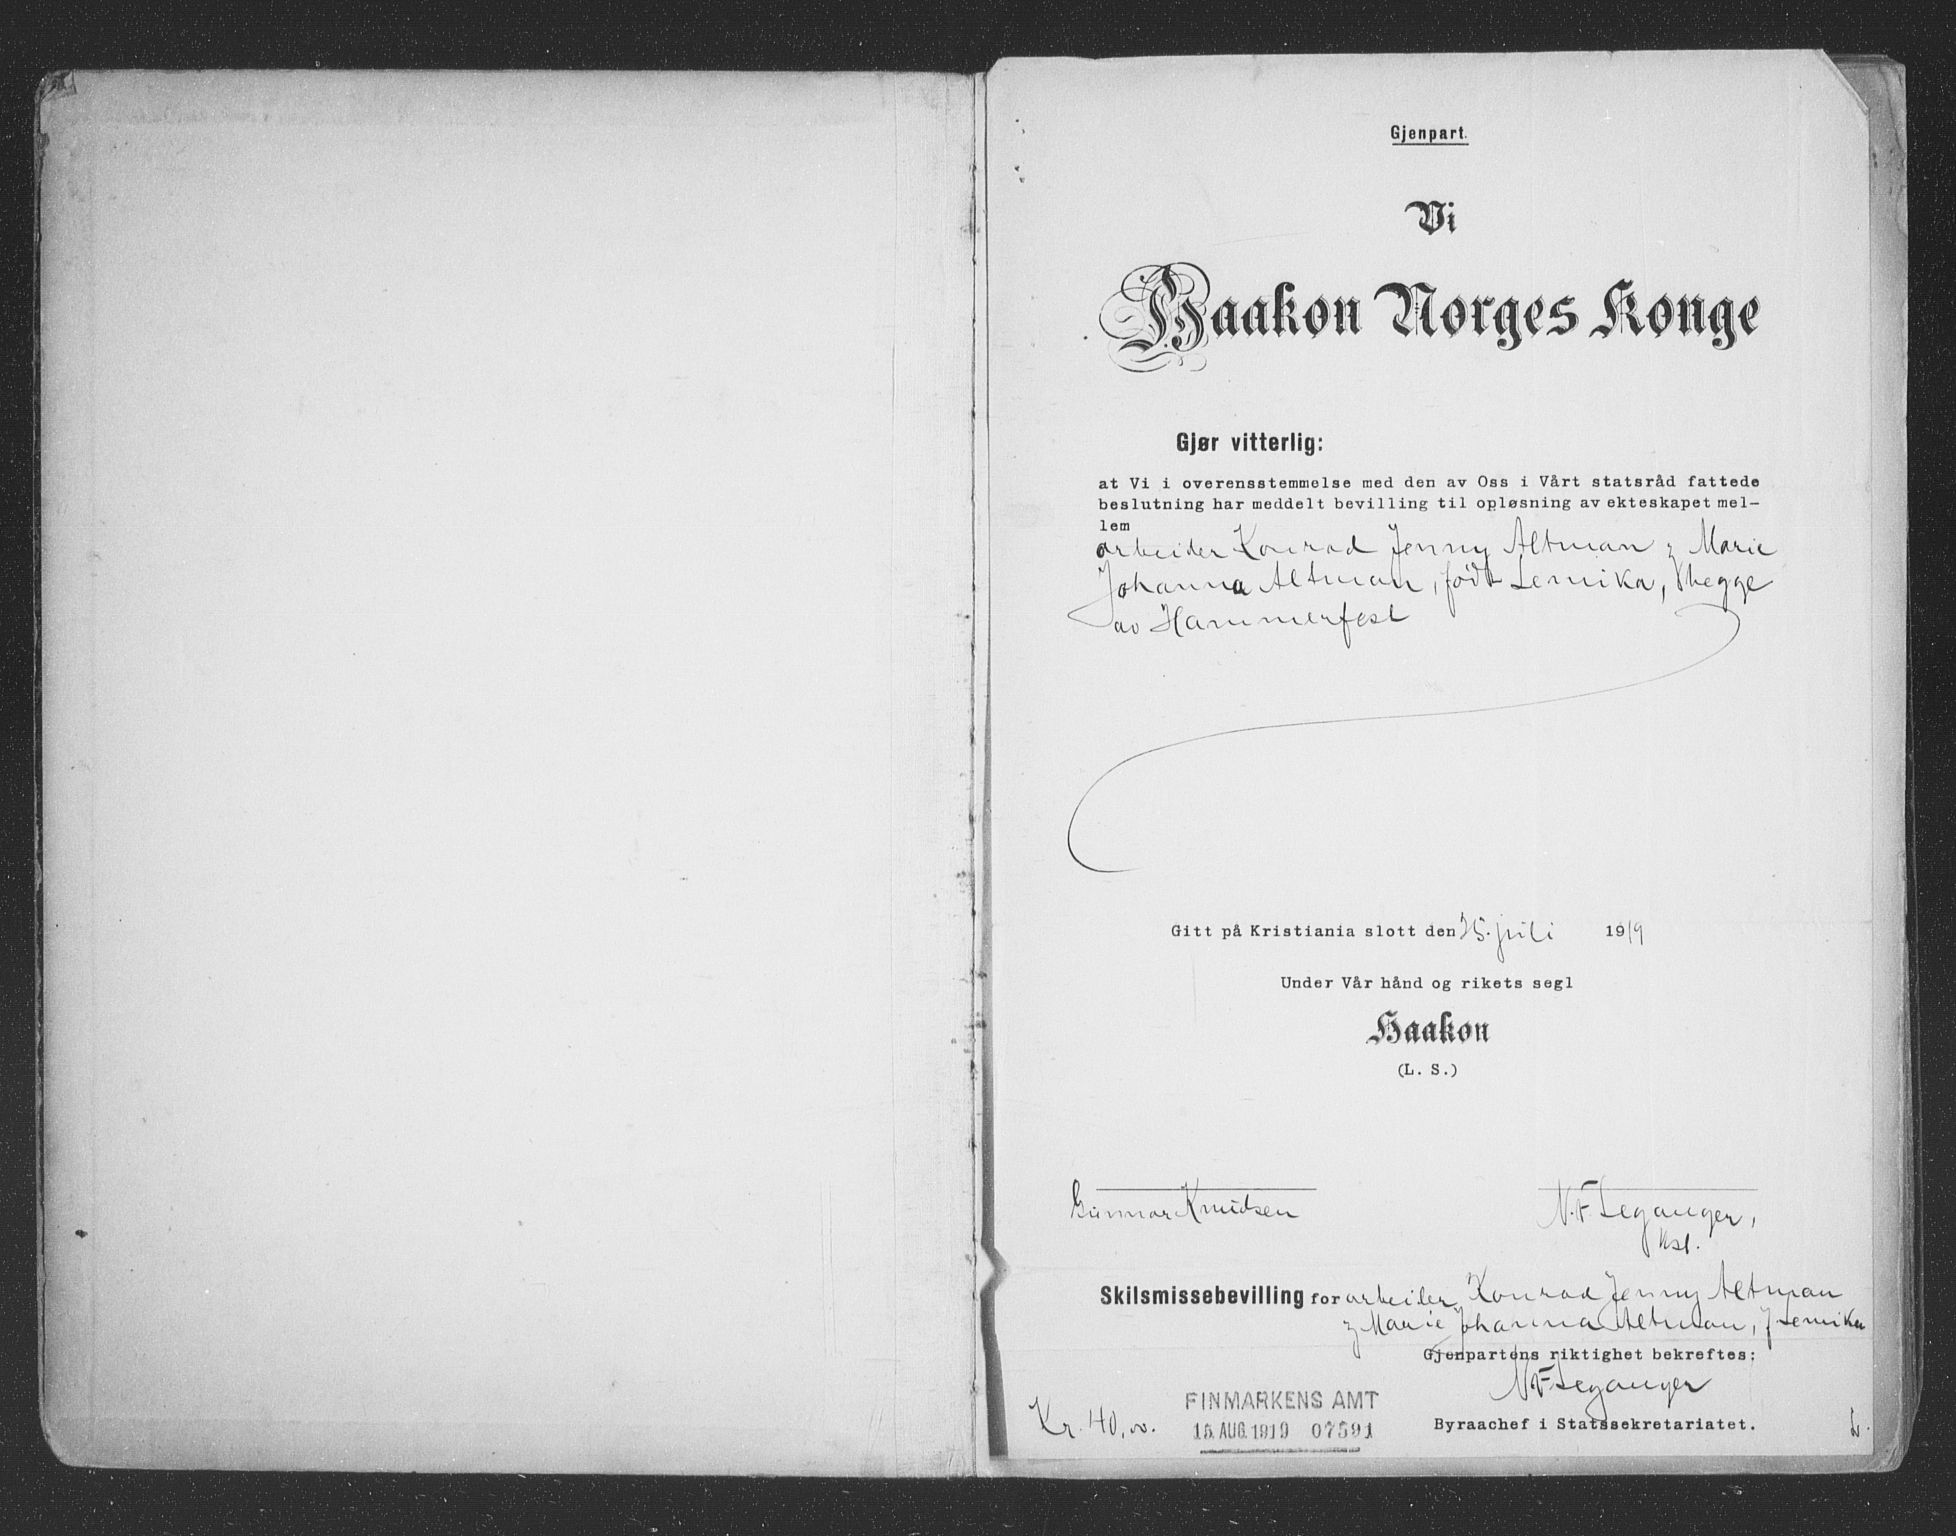 Gjenpart.
Vi
Haakon Norges Konge
Gjør vitterlig:
at Vi i overensstemmelse med den av Oss i Vårt statsråd fattede
beslutning har meddelt bevilling til opløsning av ekteskapet mel-
lem
arbeider Konrad Jenny Altman & Marie
Johanna Altman, født Lemika, begge
av Hammerfest
Gitt på Kristiania slott den 25. juli 1919
Under Vår hånd og rikets segl
Haakon
(L. S.)
Gunnar Knudsen
N. F. Leganger,
kst.
Skilsmissebevilling for arbeider Konrad Jenny Altman
& Marie Johanna Altman, f. Lemika
Gjenpartens riktighet bekreftes:
N F Leganger
Byraachef i Statssekretariatet.
FINMARKENS AMT
15. AUG. 1919 07591
Kr. 40,00.